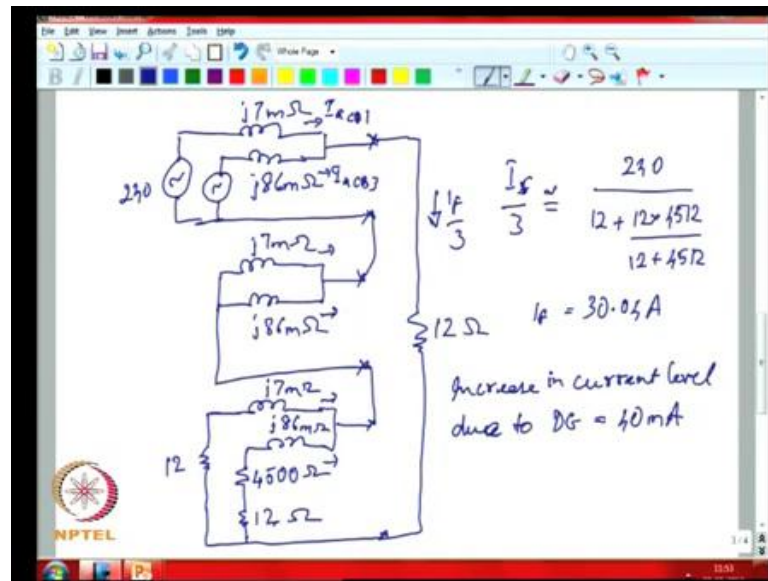 File Edit View Insert Actions Tools Help
Whole Page
B I
j7mΩ → I_ACB1
j86mΩ → I_ACB3
230
j7mΩ
j86mΩ
j7mΩ
j86mΩ
12
4500Ω
12Ω
12Ω
I_f/3
I_f/3 ≅ 230/(12 + (12×4512)/(12+4512))
I_f = 30.04A
Increase in current level
due to DG = 40mA
NPTEL
3/4
11:53